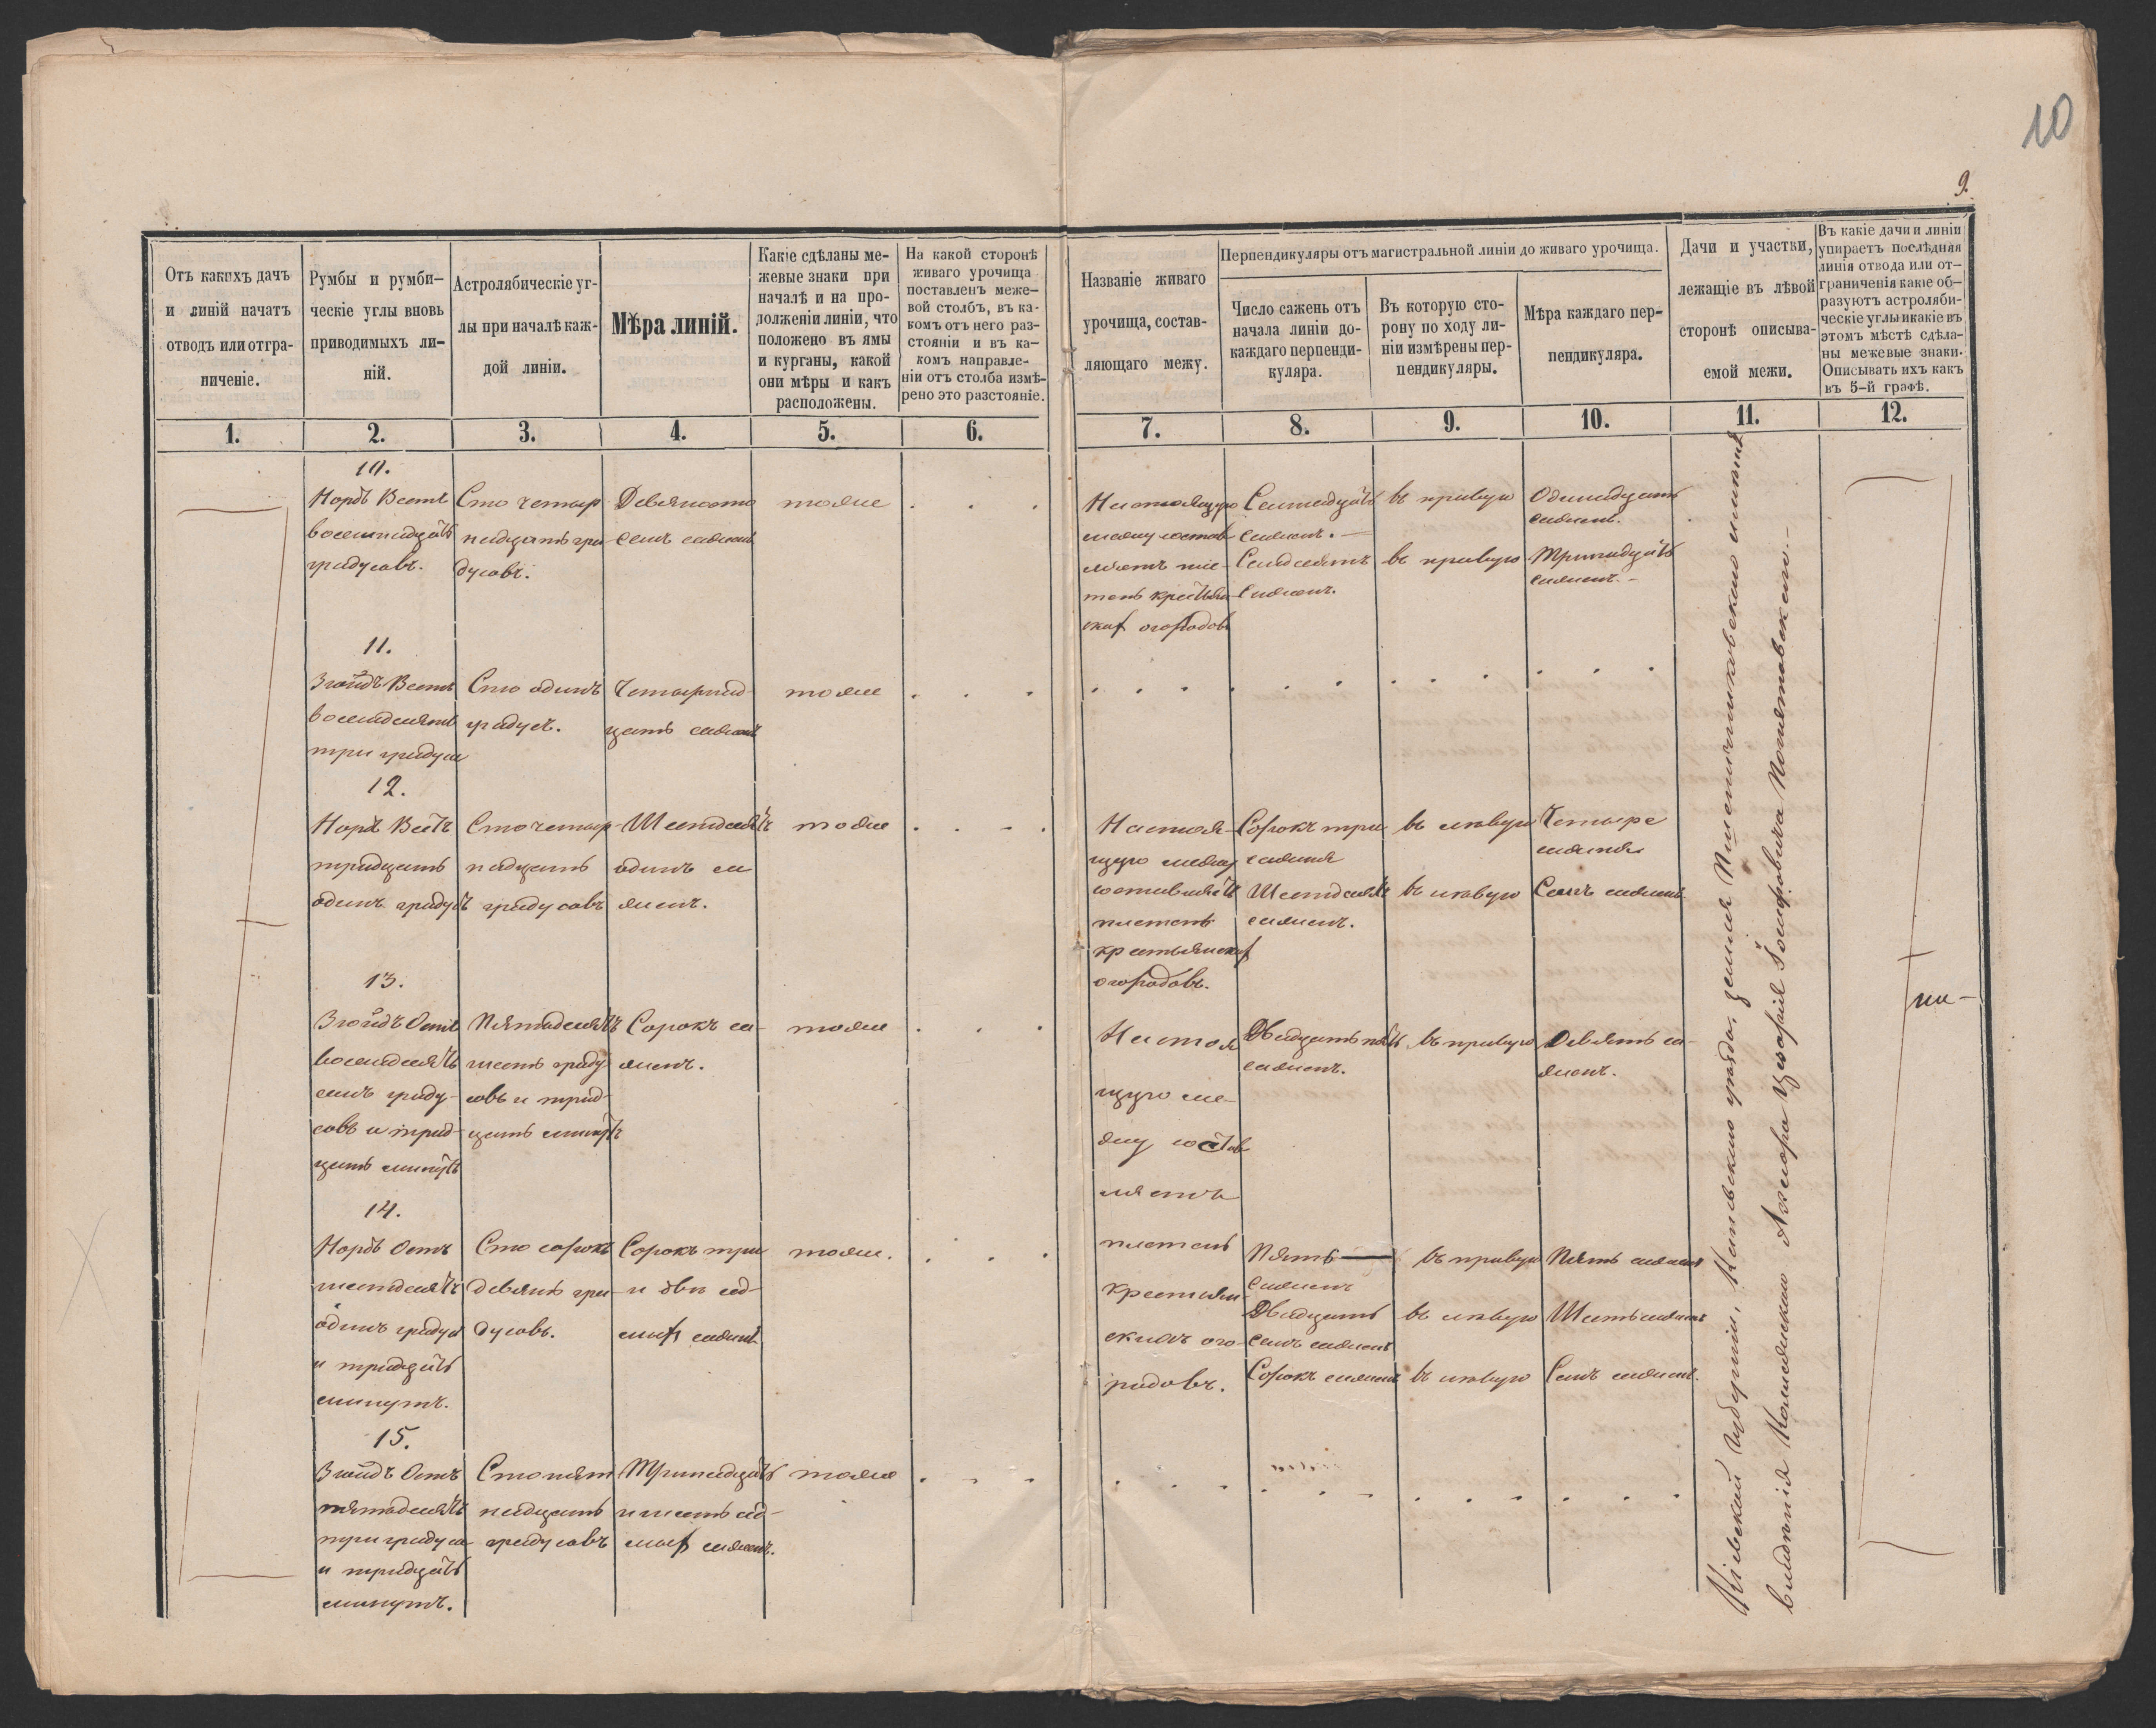 10
9.
Отъ какихъ дачъ
и линій начатъ
отводъ или отгра-
ниченіе.
Румбы и румби-
ческіе углы вновь
приводимыхъ ли-
ній.
Астролябическіе уг-
лы при началѣ каж-
дой линіи.
Мѣра линій.
Какіе сдѣланы ме-
жевые знаки при
началѣ и на про-
долженіи линіи, что
положено въ ямы
и курганы, какой
они мѣры и какъ
расположены.
На какой сторонѣ
живаго урочища
поставленъ меже-
вой столбъ, въ ка-
комъ отъ него раз-
стояніи и въ ка-
комъ направле-
ніи отъ столба измѣ-
рено это разстояніе.
Названіе живаго
урочища, состав-
ляющаго межу.
Перпендикуляры отъ магистральной линіи до живаго урочища.
Число сажень отъ
начала линіи до-
каждаго перпенди-
куляра.
Въ которую сто-
рону по ходу ли-
ніи измѣрены пер-
пендикуляры.
Мѣра каждаго пер-
пендикуляра.
Дачи и участки,
лежащіе въ лѣвой
сторонѣ описыва-
емой межи.
Въ какіе дачи и линіи
упираетъ послѣдняя
линія отвода или от-
граниченія какіе об-
разуютъ астроляби-
ческіе углы и какіе въ
этомъ мѣстѣ сдѣла-
ны межевые знаки.
Описывать ихъ какъ
въ 5-й графѣ.
1. 2. 3. 4. 5. 6. 7. 8. 9. 10. 11. 12.
10.
Нордъ Вестъ
восемнадцать
градусовъ.
Сто четыр
надцать гра
дусовъ.
Девяносто
семь сажень
тоже
Настоящую
межу состав
ляетъ пле-
тень крестьян
скихъ огородовъ
Семнадцать
сажень.
въ правую
Одинадцать
сажень.
Семдесятъ
сажень.
въ правую
Тринадцать
сажень.
11.
Зюйдъ Вестъ
восемдесятъ
три градуса
Сто одинъ
градусъ.
Четырнад-
цать сажень
тоже
12.
Нордъ Вестъ
тридцать
одинъ градусъ
Сто четыр-
надцать
градусовъ
Шестдесятъ
одинъ са
жень.
тоже
Настоя-
щую межу
составляетъ
плетень
крестьянскихъ
огородовъ.
Сорокъ три
сажня
въ лѣвую
Четыре
сажня
Шестдесятъ
сажень.
въ лѣвую
Семь сажень
13.
Зюйдъ Остъ
восемдесятъ
семь граду-
совъ и трид-
цать минутъ
Пятьдесятъ
шесть граду
совъ и трид-
цать минутъ
Сорокъ са-
жень.
тоже
Настоя
щую ме-
жу состав
ляетъ
плетень
крестьян-
скихъ ого-
родовъ.
Двадцать пять
сажень.
въ правую
Девять са-
жень.
14.
Нордъ Остъ
шестдесятъ
одинъ градусъ
и тридцать
минутъ.
Сто сорокъ
девять гра-
дусовъ.
Сорокъ три
и двѣ сед-
мыхъ сажень
тоже.
Пять
сажень
въ правую
Пять сажень
Двадцать
семь сажень
въ лѣвую
Шесть сажень
Сорокъ сажень
въ лѣвую
Семь сажень.
15.
Зюйдъ Остъ
пятьдесятъ
три градуса
и тридцать
минутъ.
Сто пят
надцать
градусовъ
Тринадцать
и шесть сед-
мыхъ сажень.
тоже
Кіевской губерніи, Каневскаго уѣзда, земля Пшеничниковскаго имѣнія
владѣнія Коллежскаго Ассесора Цезарія Іосифовича Понятовскаго.